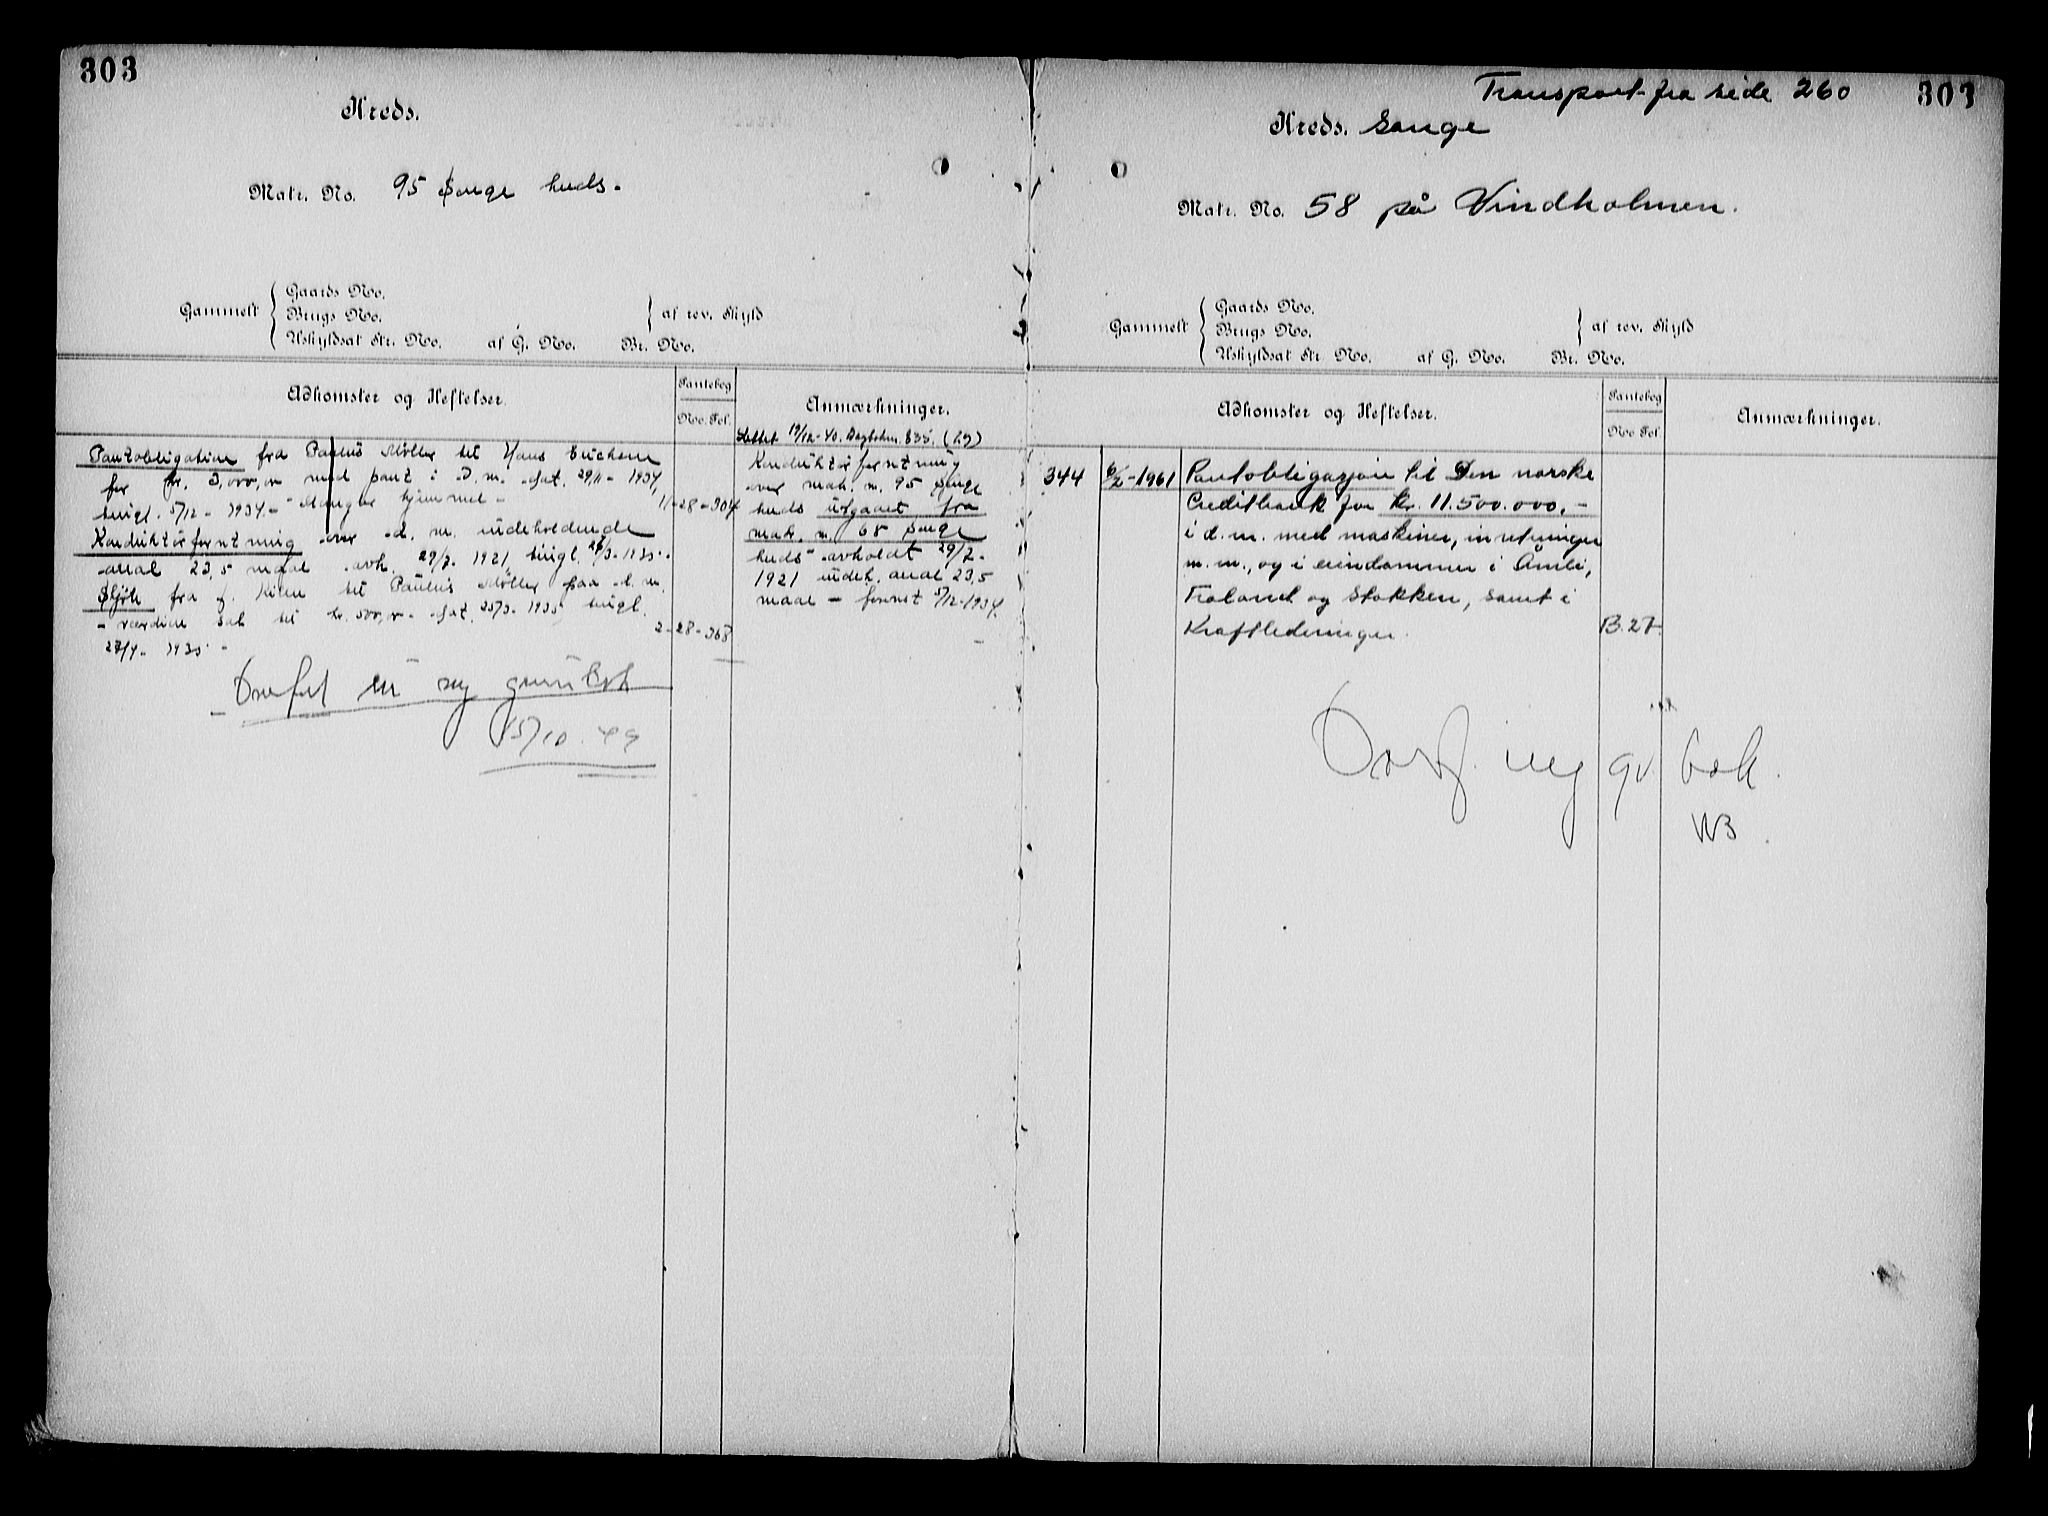 303
Kreds.
Matr. No. 95 Songe kreds.
Gammelt
Gaards No.
Brugs No.
Uskyldsat Str. No. af G. No. Br. No.
af rev. Skyld
Adkomster og Heftelser.
Pantebog
No. Fol.
Anmærkninger.
Pantobligation fra Paulus Møller til Hans Erichsen
for kr. 3,000,00 med pant i d. m. dat. 29/11-1934,
tingl. 5/12-1934. - Mangler hjemmel -
11-28-304
Konduktørforretning over d. m. indeholdende
areal 23,5 maal avh. 29/7-1921, tingl. 26/3-1935.
Skjøte fra J. Kilen til Paulus Møller paa d. m.
- værdien sat til kr. 500,00 - dat. 25/3-1935, tingl.
27/4-1935 -
2-28-368
Slettet 19/12-40. Dagboken 835.
Konduktørforretning
over matr. n. 95 Songe
kreds utgaaet fra
matr. n. 68 Songe
kreds avholdt 29/7-
1921 indeh. areal 23,5
maal - forevist 5/12-1934.
Overført til ny grunnbok
15/10.49
Transport fra side 260
303
Kreds. Songe
Matr. No. 58 på Vindholmen.
Gammelt
Gaards No.
Brugs No.
Uskyldsat Str. No. af G. No. Br. No.
af rev. Skyld
Adkomster og Heftelser.
Pantebog
No Fol.
Anmærkninger.
344 6/2-1961 Pantobligasjon til Den norske
Creditbank for kr. 11.500.000,-
i d. m. med maskiner, innretninger
m.m., og i eiendommer i Åmli,
Froland og Stokken, samt i
Kraftledninger. B.27.
Overf. ny gr. bok.